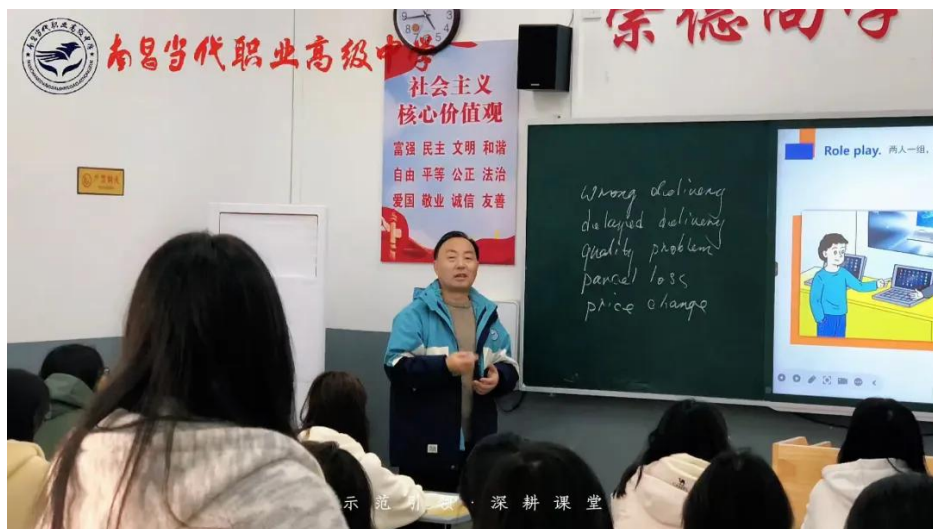 南昌当代职业高级中学
9
8
7
5
4
崇德尚学
社会主义
核心价值观
富强 民主 文明 和谐
自由 平等 公正 法治
爱国 敬业 诚信 友善
wrong delivery
delayed delivery
quality problem
parcel loss
price change
Role play. 两人一组,
示范引领·深耕课堂